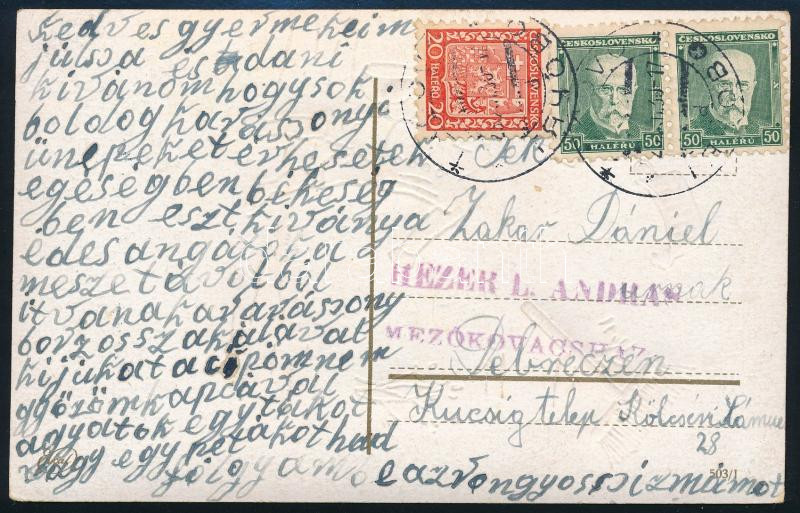 kedvesgyermekeim
julsva es dani
kivánomhogysok
boldog karácsonyi
ünepeket érhesetek
egésségben békeség
ben eszt kiványa
edes angatok a
meszetávolból
itvanakaravássony
borzosszakálavat
kijukatacipömnem
győzömkapcával
agyatok egy takot
vagy egy pétakothad
fólgyamb
eazvongyosscizmámot
20 HALÉŘŮ 20
ČESKOSLOVENSKO
ČESKOSLOVENSKO
50 HALÉŘŮ 50
ČESKOSLOVENSKO
50 HALÉŘŮ 50
Tek
Zakar Dániel
urnak
HEZER L. ANDRÁS
MEZŐKOVÁCSHÁZ
Debreczen
Kucsig telep Kölcsei
28
503/I